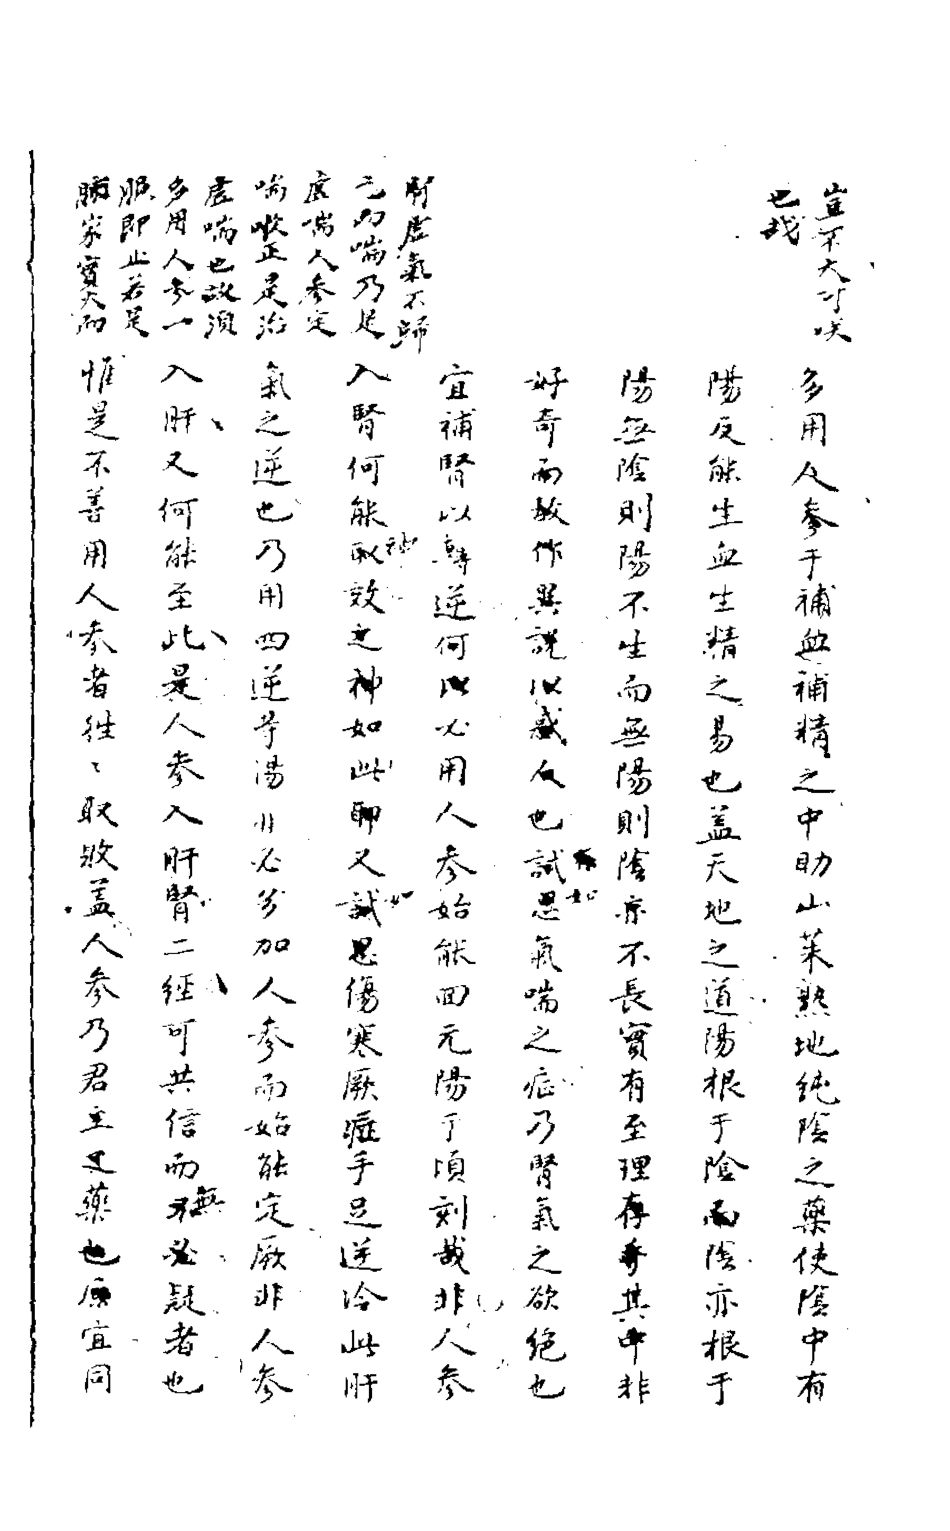 豈不大可咲
也哉
多用人參于補血補精之中助山茱熟地純陰之藥使陰中有
陽反能生血生精之易也蓋天地之道陽根于陰而陰亦根于
陽無陰則陽不生而無陽則陰亦不長實有至理存乎其中非
好奇而故作異說以惑人也試思氣喘之症乃腎氣之欲絕也
宜補腎以轉逆何以必用人參始能回元陽于頃刻哉非人參
入腎何能取效之神如此聊又試思傷寒厥症手足逆冷此肝
氣之逆也乃用四逆等湯亦必多加人參而始能定厥非人參
入肝又何能至此是人參入肝腎二經可共信而無必疑者也
惟是不善用人參者往〻取敗蓋人參乃君主之藥也原宜同
腎虛氣不歸
元而喘乃是
虛喘人參定
喘嗽正是治
虛喘也故須
多用人參一
服即止若是
肺家實火而
神
如